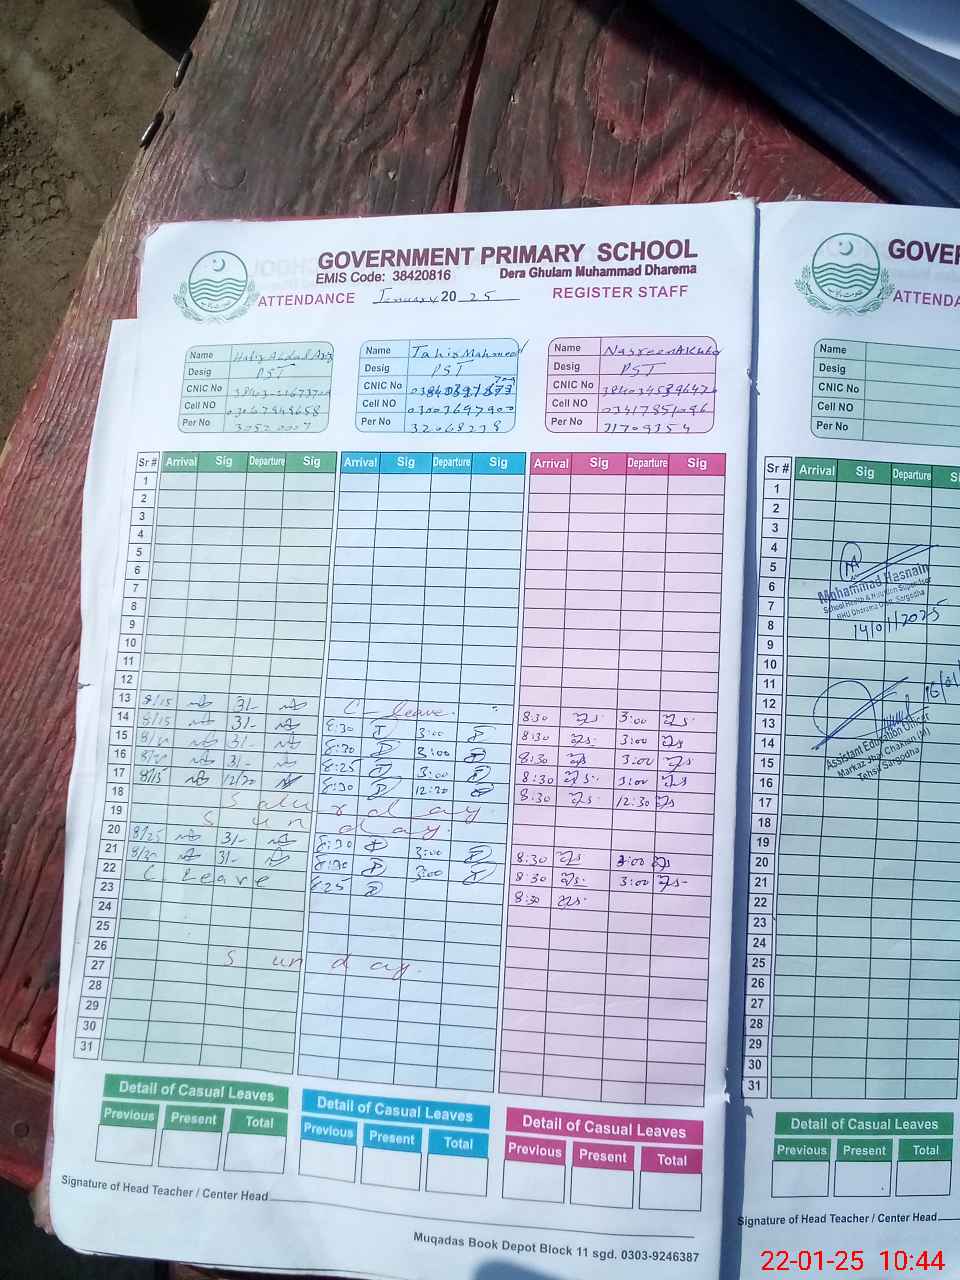 GOVERNMENT PRIMARY SCHOOL
EMIS Code: 38420816 Dera Ghulam Muhammad Dharema
ATTENDANCE January 2025 REGISTER STAFF
Name
Desig PST
CNIC No
Cell NO
Per No
Name Tahir Mahmood
Desig PST
CNIC No
Cell NO 03003697900
Per No 32068238
Name Nasreen Akhtar
Desig PST
CNIC No
Cell NO 03417851096
Per No 31709354
Sr # Arrival Sig Departure Sig Arrival Sig Departure Sig Arrival Sig Departure Sig
1
2
3
4
5
6
7
8
9
10
11
12
13 8/15 3/- C-leave. 8:30 3:00
14 8/15 3/- 8:30 3:00 8:30 3:00
15 3/- 8:30 3:00 8:30 3:00
16 3/- 8:25 3:00 8:30 3:00
17 8/15 12/30 8:30 12:30 8:30 12:30
18 Saturday
19 Sunday.
20 8/25 3/- 8:30 3:00 8:30 3:00
21 8/30 3/- 8:30 3:00 8:30 3:00
22 C Leave 8:25 8:30
23
24
25
26 Sunday.
27
28
29
30
31
Detail of Casual Leaves
Previous Present Total
Detail of Casual Leaves
Previous Present Total
Detail of Casual Leaves
Previous Present Total
Signature of Head Teacher / Center Head
Muqadas Book Depot Block 11 sgd. 0303-9246387
GOVER
ATTENDA
Name
Desig
CNIC No
Cell NO
Per No
Sr # Arrival Sig Departure Si
1
2
3
4
5
6
7
8
9
10
11
12
13
14
15
16
17
18
19
20
21
22
23
24
25
26
27
28
29
30
31
Mohammad Hasnain
School Health & Nutrition Supervisor
BHU Dharema Distt. Sargodha
14/01/2025
16/01/
Assistant Education Officer
Markaz Jhal Chakian (M)
Tehsil Sargodha
Detail of Casual Leaves
Previous Present Total
Signature of Head Teacher / Center Head
22-01-25 10:44